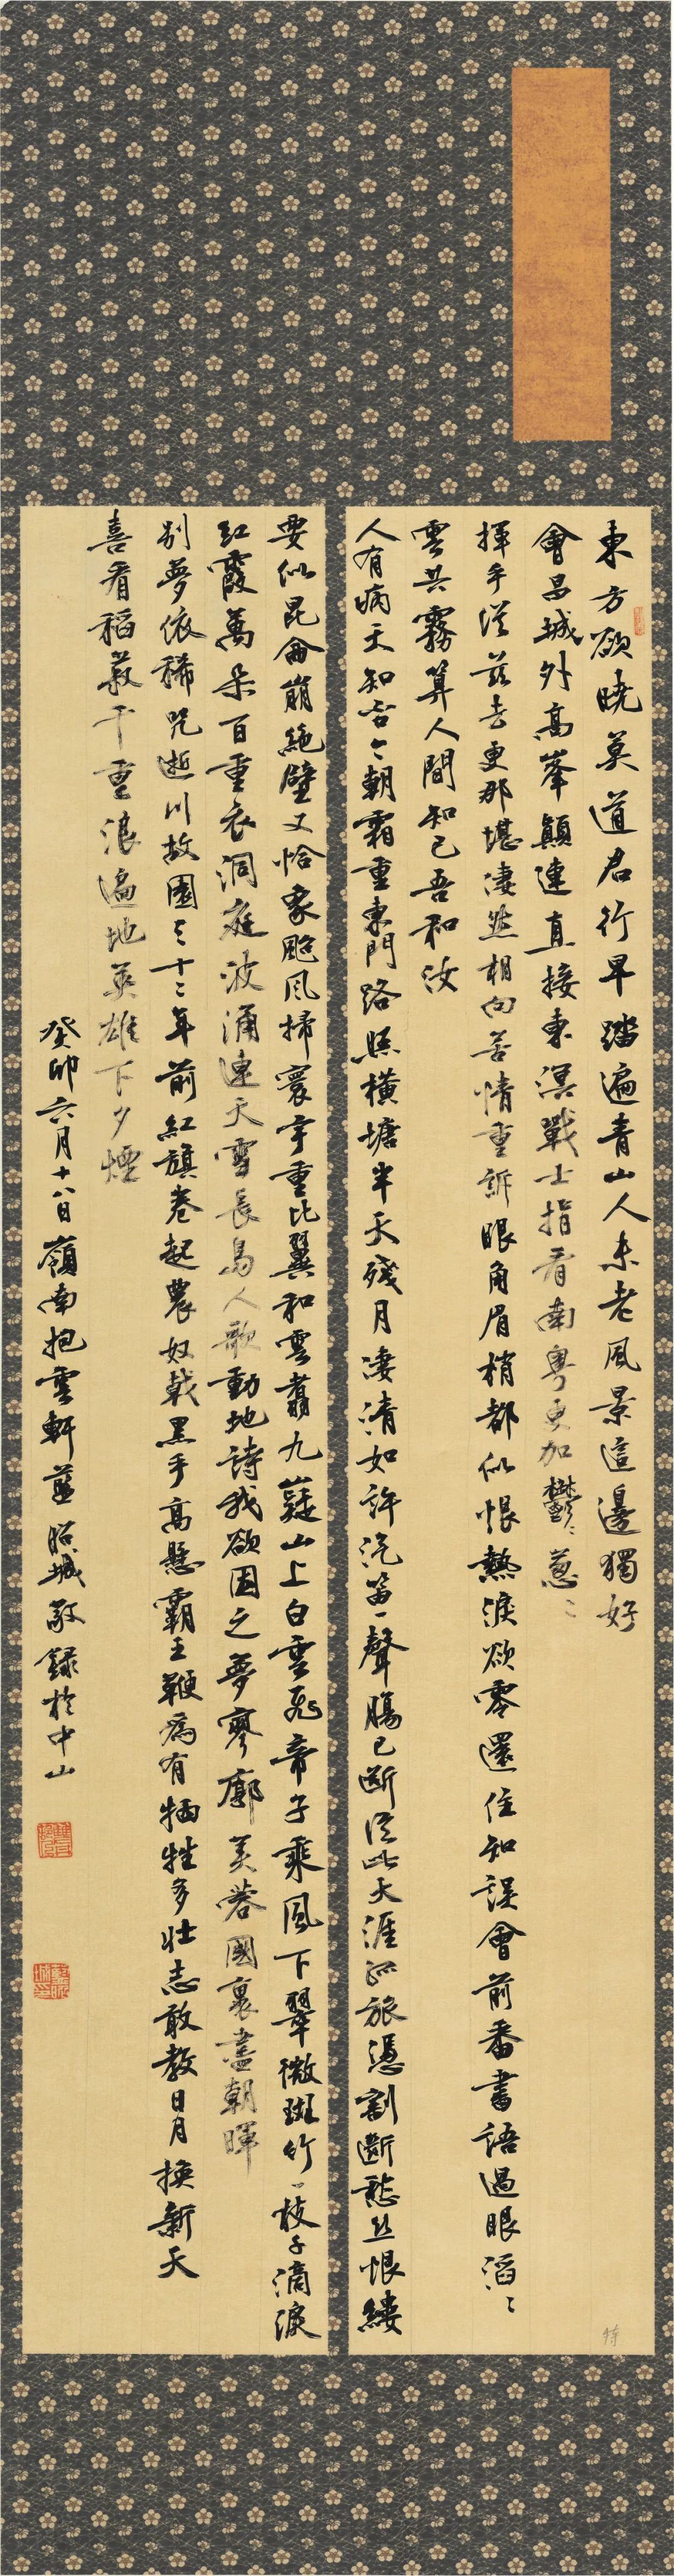 東方欲曉莫道君行早踏遍青山人未老風景這邊獨好
會昌城外高峯顛連直接東溟戰士指看南粵更加鬱〻蔥〻
揮手從茲去更那堪凄然相向苦情重訴眼角眉梢都似恨熱淚欲零還住知誤會前番書語過眼滔〻
雲共霧算人間知己吾和汝
人有病天知否今朝霜重東門路照橫塘半天殘月凄清如許汽笛一聲腸已斷從此天涯孤旅憑割斷愁絲恨縷
要似昆侖崩絕壁又恰象颱風掃寰宇重比翼和雲翥九嶷山上白雲飛帝子乘風下翠微斑竹一枝千滴淚
紅霞萬朵百重衣洞庭波涌連天雪長島人歌動地詩我欲因之夢寥廓芙蓉國裏盡朝暉
別夢依稀咒逝川故園三十二年前紅旗卷起農奴戟黑手高懸霸主鞭為有犧牲多壯志敢教日月換新天
喜看稻菽千重浪遍地英雄下夕煙
癸卯六月十八日嶺南抱雲軒藍照城敬錄於中山
特